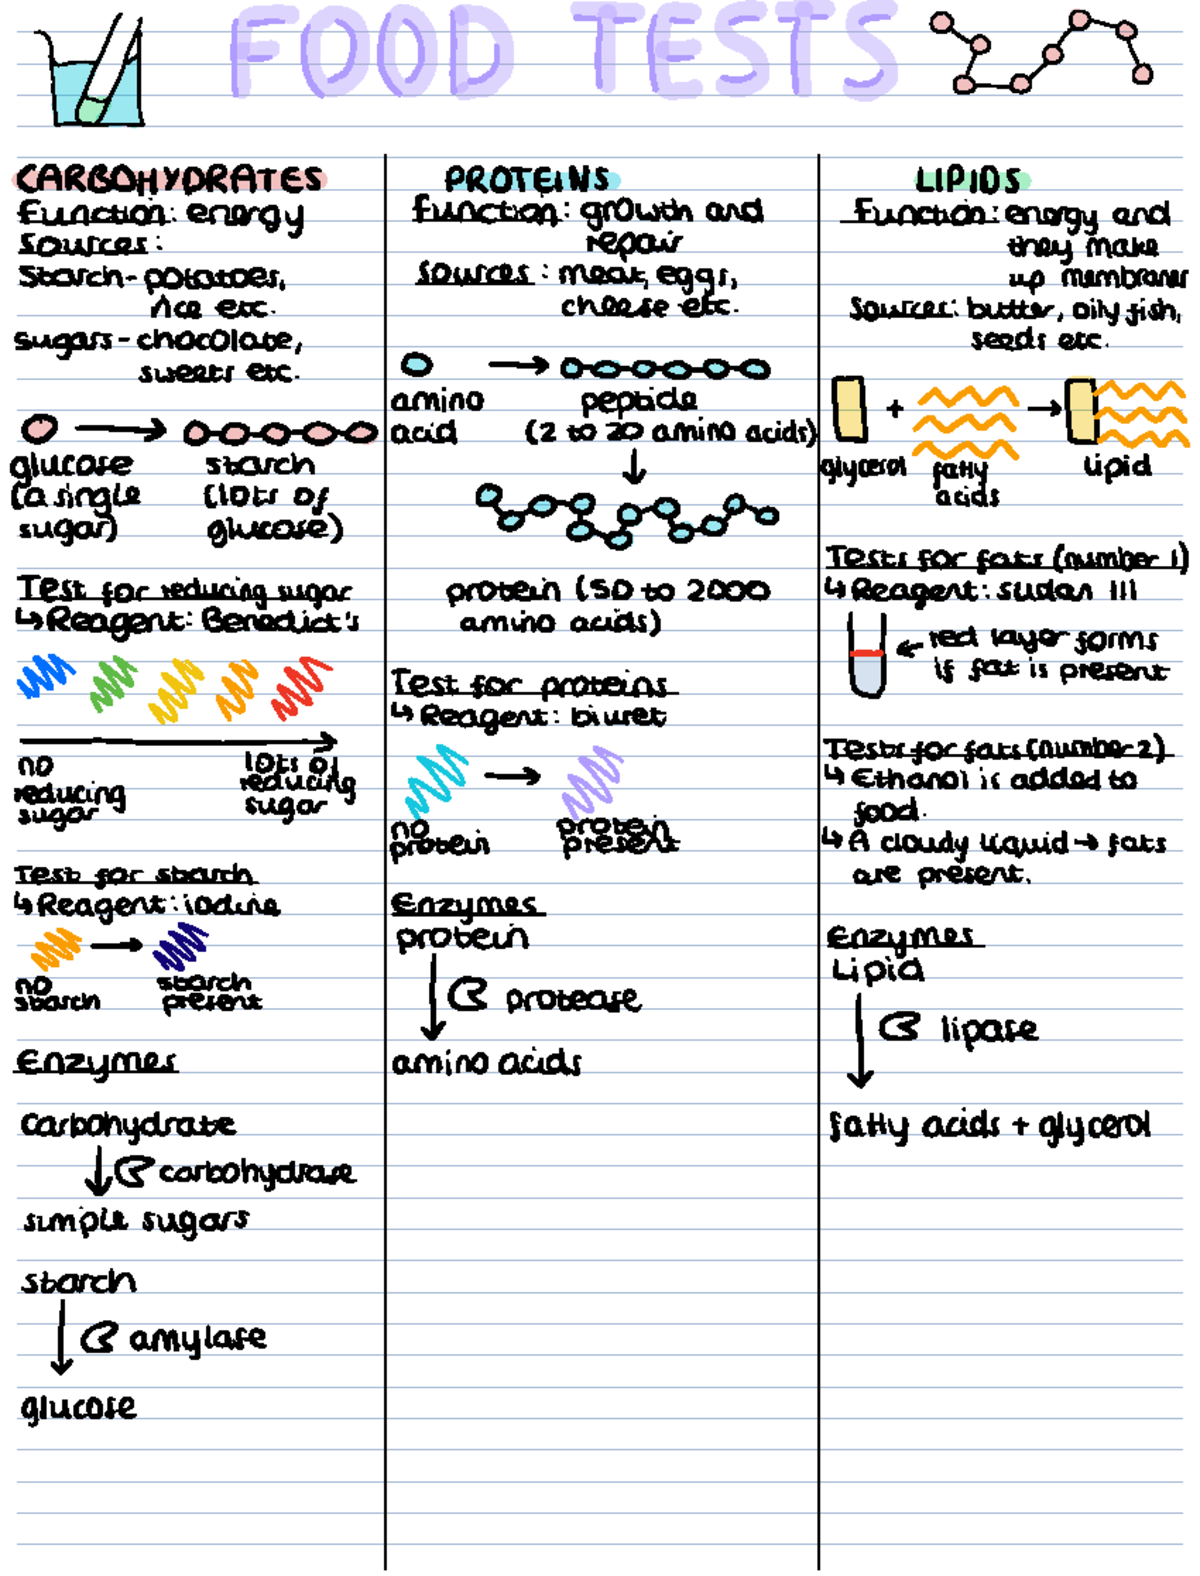 FOOD TESTS
CARBOHYDRATES
Function: energy
Sources:
Starch - potatoes,
rice etc.
sugars - chocolate,
sweets etc.
glucose
(a single
sugar)
starch
(lots of
glucose)
Test for reducing sugar
↳ Reagent: Benedict's
no
reducing
sugar
lots of
reducing
sugar
Test for starch
↳ Reagent: iodine
no
starch
starch
present
Enzymes
Carbohydrate
carbohydrase
simple sugars
starch
amylase
glucose
PROTEINS
Function: growth and
repair
Sources: meat, eggs,
cheese etc.
amino
acid
peptide
(2 to 20 amino acids)
protein (50 to 2000
amino acids)
Test for proteins
↳ Reagent: biuret
no
protein
protein
present
Enzymes
protein
protease
amino acids
LIPIDS
Function: energy and
they make
up membranes
Sources: butter, oily fish,
seeds etc.
+
glycerol
fatty
acids
lipid
Tests for fats (number 1)
↳ Reagent: sudan III
← red layer forms
if fat is present
Tests for fats (number 2)
↳ Ethanol is added to
food.
↳ A cloudy liquid → fats
are present.
Enzymes
Lipid
lipase
fatty acids + glycerol